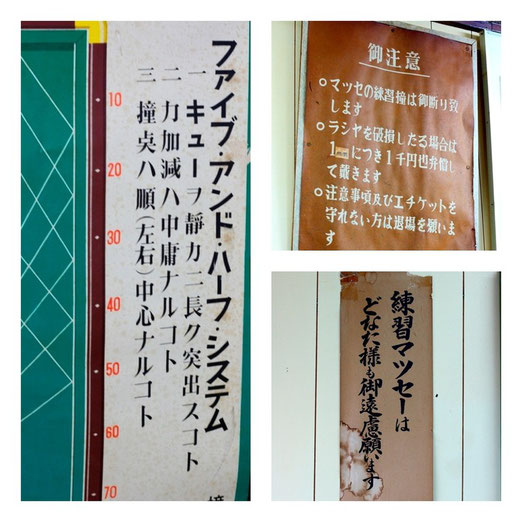 ファイブ・アンド・ハーフ・システム
一 キューヲ靜カニ長ク突出スコト
二 力加減ハ中庸ナルコト
三 撞点ハ順(左右)中心ナルコト
10
20
30
40
50
60
70
御注意
○マツセの練習撞は御断り致
します
○ラシヤを破損したる場合は
1につき1千円也弁償し
て戴きます
○注意事項及びエチケットを
守れない方は退場を願いま
す
練習マツセーは
どなた様も御遠慮願います